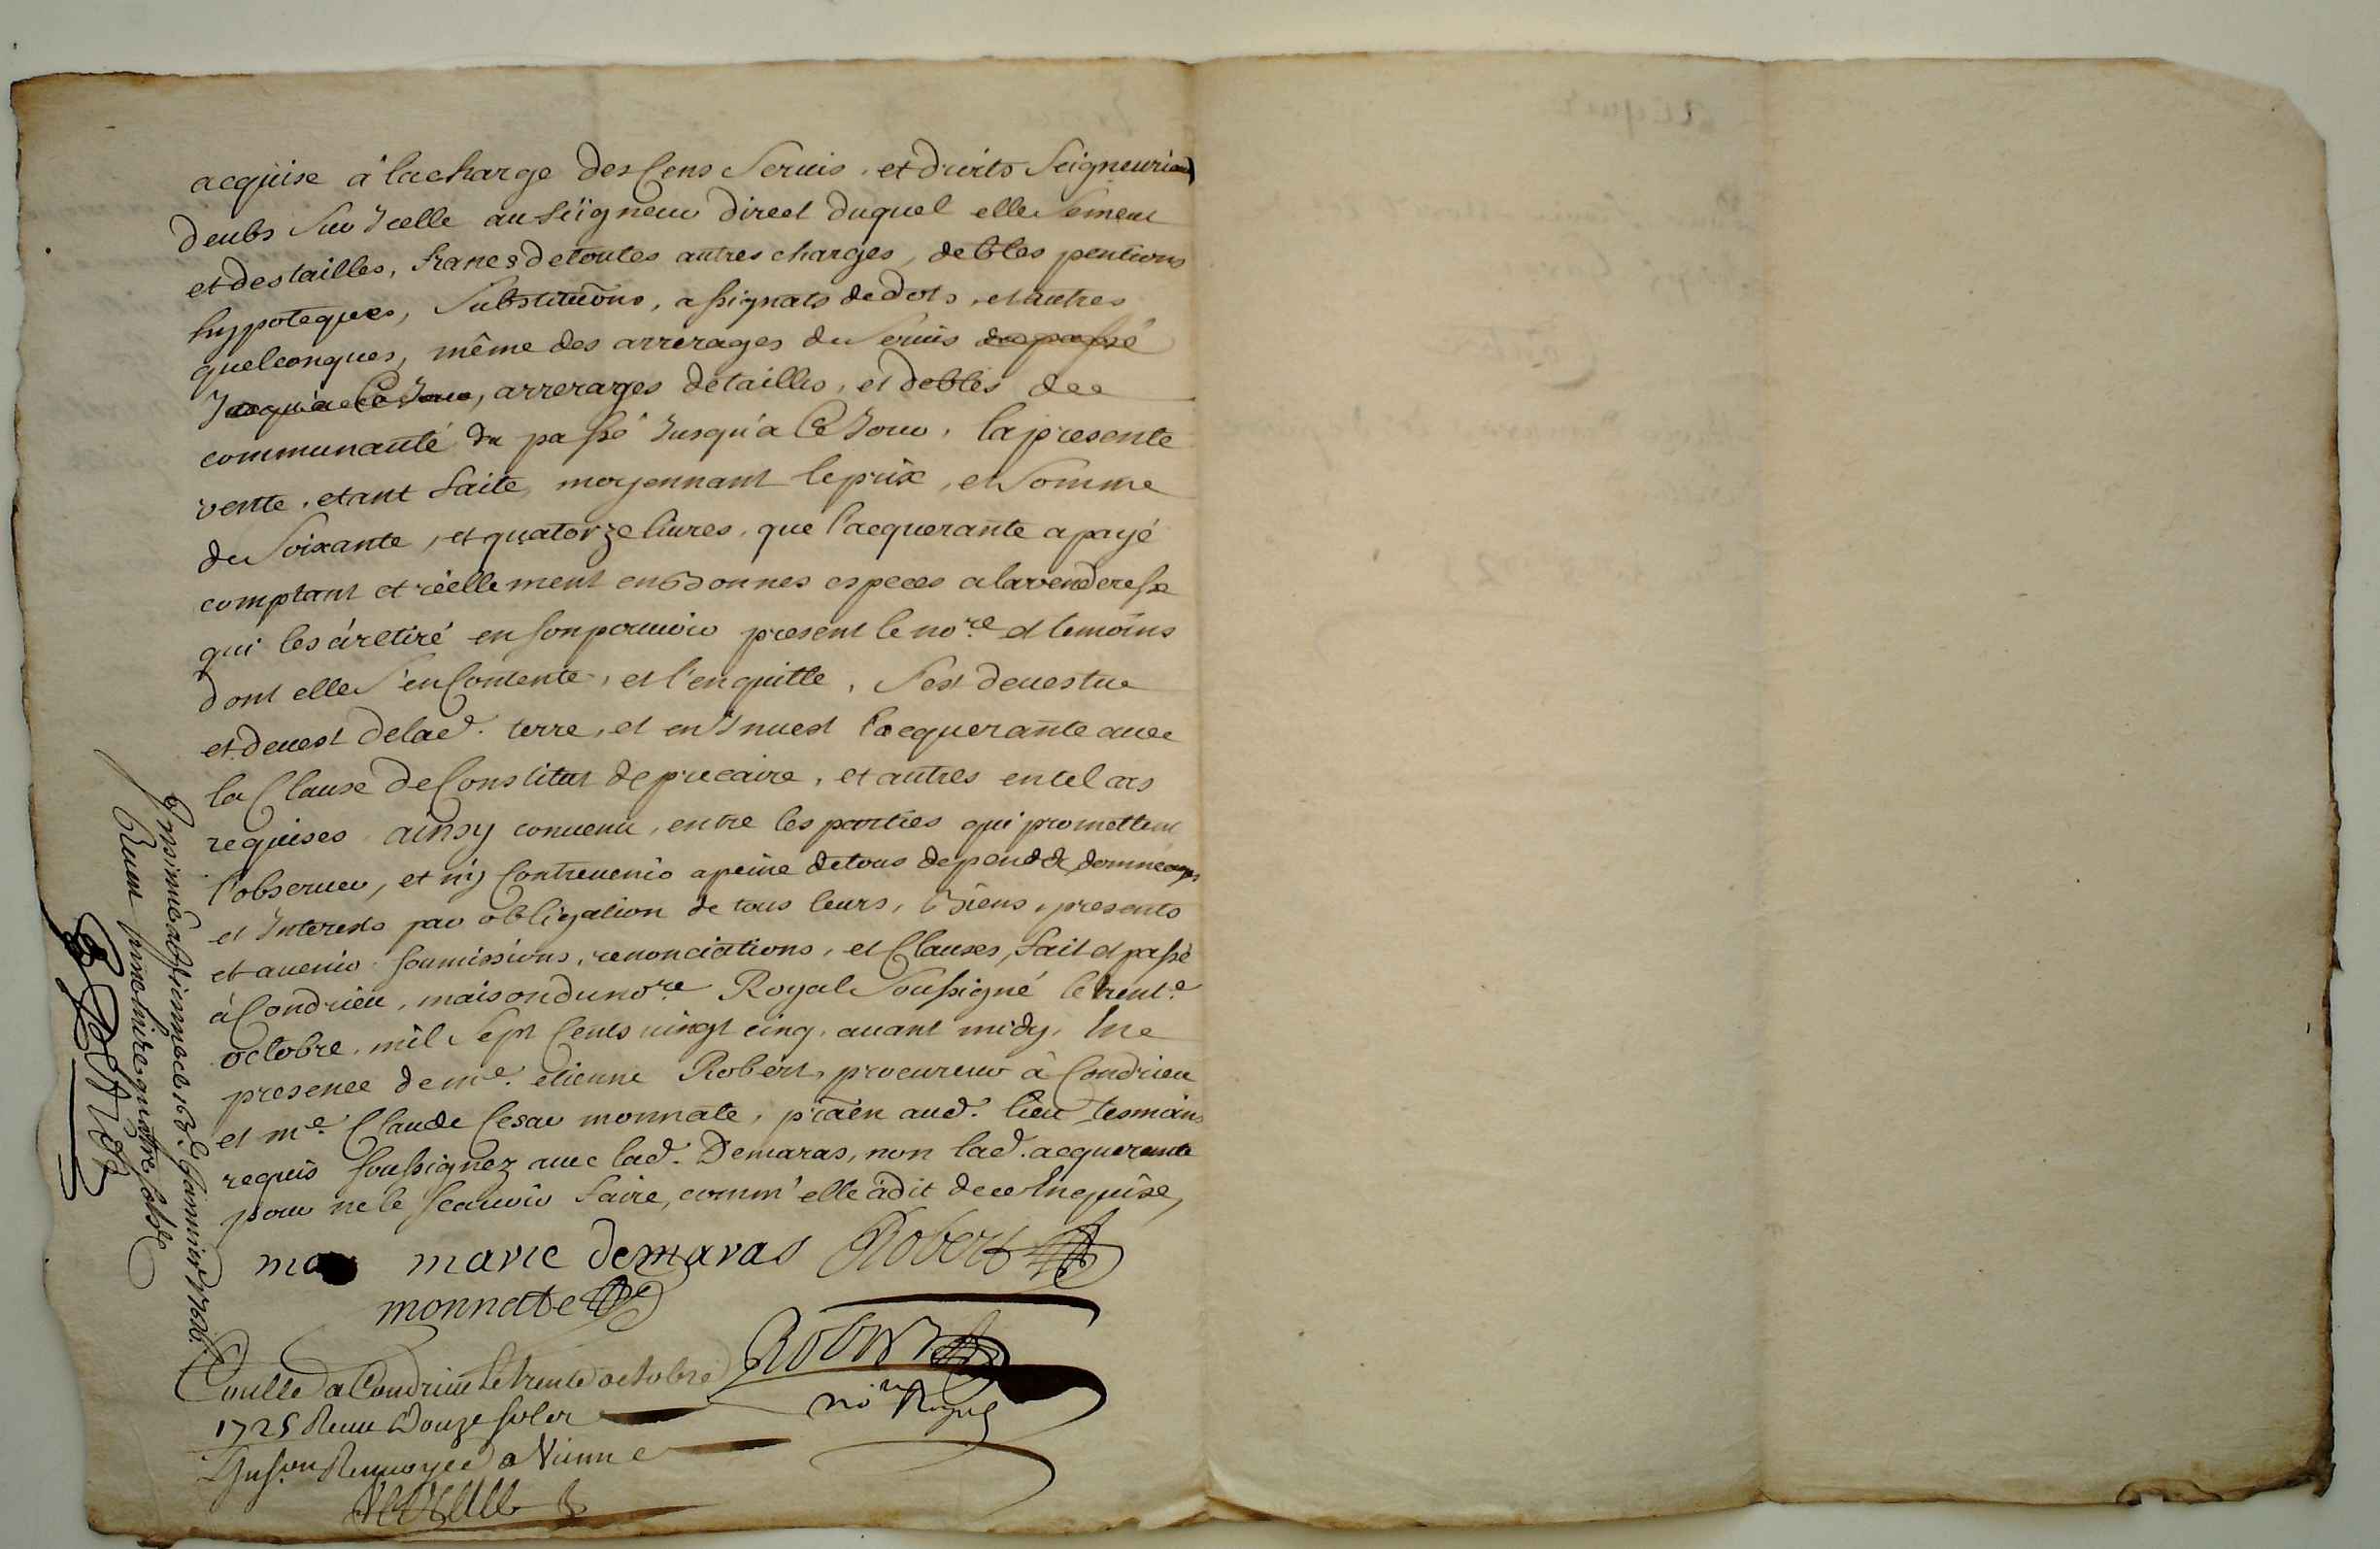 acquise a la charge des Cens Servis, et droits Seigneuriaux
deubs Sur Icelle au Seigneur direct duquel elle Se meut
et des tailles, franc & de toutes autres charges, debtes pentions
hypoteques, Substituõns, assignats de dots, et autres
quelconques, même des arrerages de Servis du passé
Jusqu'a Ce Jour, arrerages de tailles, et debtes de
communauté du passé Jusqu'a Ce Jour, la presente
vente, etant faite, moyennant le prix, et Somme
de Soixante, et quatorze livres, que l'acquerante a payé
comptant et réellement en Bonnes especes a la venderesse
qui les à retiré en son pouvoir present le no.re et temoins
dont elle S'en Contente, et l'en quitte, S'est devestue
et devest de la d. terre, et en Invest l'acquerante avec
la Clause de Constitut de precaire, et autres en tel cas
requises ainsy convenu, entre les parties qui promettent
l'observer, et n'y Contrevenir a peine de tous depend & dommages
et Interests par obligation de tous leurs, Biens, presents
et avenir soumissions, renonciations, et Clauses, fait et passé
à Condrieu, maison du no.re Royal Soussigné le trent.e
octobre, mil Sept Cents vingt cinq, avant midy, En
presence de m.e etienne Robert, procureur à Condrieu
et m.e Claude Cesar monnate, praën aud. lieu tesmoins
requis soussignez avec lad. Demaras, non lad. acquerante
pour ne le scavoir faire, comm' elle à dit de ce Enquise,
marie demaras Robert
monnate
Robert
no.re Royal
Contrllé a Condrieu le trente octobre
1725 Receu Douze sols
Insi.on Renvoyée a Vienne
Insinué a Vienne le 16.e Janvier 1726.
Receu une livre quatre sols